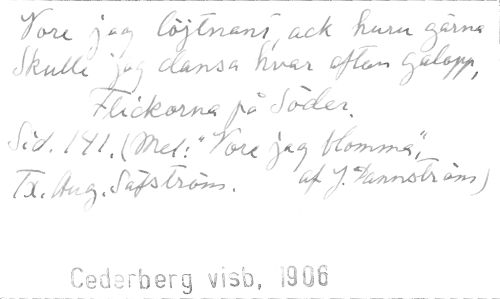 Vore jag löjtnant, ack huru gärna
Skulle jag dansa hvar afton galopp,
Flickorna på Söder.
Sid. 141. (Mel: "Vore jag blomma",
Tx. Aug. Säfström. af J. Dannström)
Cederberg visb, 1906